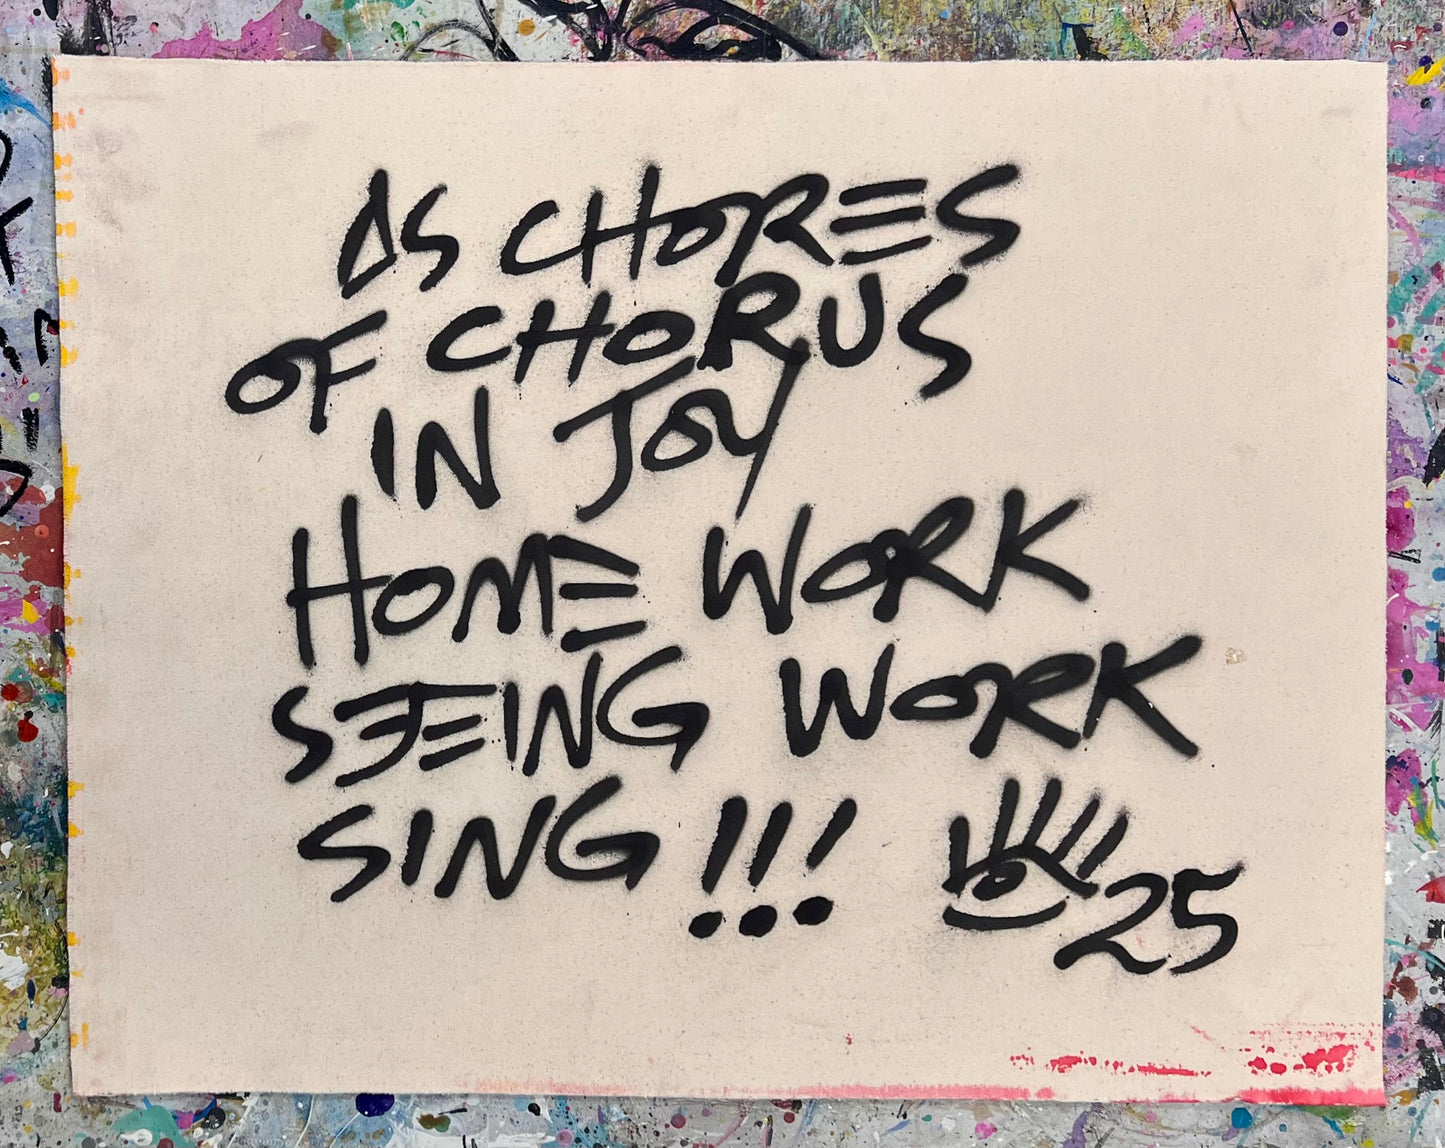 AS CHORES
OF CHORUS
IN JOY
HOME WORK
SEEING WORK
SING !!!
25